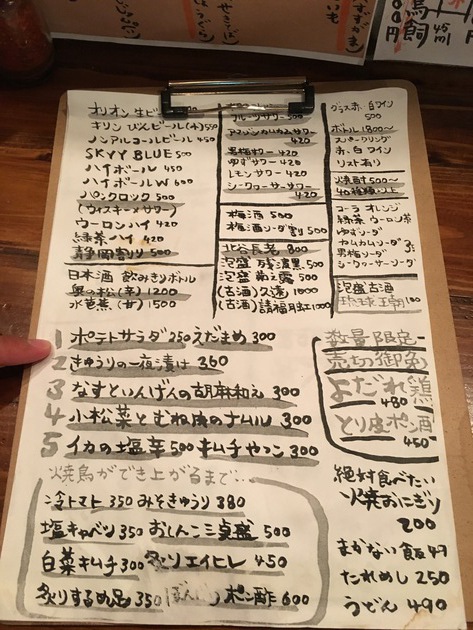 オリオン生ビール
キリン びんビール(中)550
ノンアルコールビール 450
SKYY BLUE 500
ハイボール 450
ハイボールW 600
パンクロック 500
(ウィスキーメサワー)
ウーロンハイ 420
緑茶ハイ 420
静岡割り 500
日本酒 飲みきりボトル
奥の松(辛) 1200
水芭蕉(甘) 1500
フルーツサワー 500
アマゾンカムカムサワー
420
男梅サワー 420
ゆずサワー 420
レモンサワー 420
シークヮーサーサワー
420
梅酒 500
梅酒ソーダ割 500
北谷長老 800
泡盛 残波黒 500
泡盛 菊之露 500
(古酒)久遠 1000
(古酒)請福 1000
グラス赤・白ワイン
500
ボトル 1800〜
スパークリング
赤、白ワイン
リストあり
焼酎 500〜
40種類以上
コーラ オレンジ
緑茶 ウーロン茶
ゆずソーダ
カムカムソーダ
男梅ソーダ
シークヮーサーソーダ
泡盛古酒
琉球王朝
1 ポテトサラダ 250 えだまめ 300
2 きゅうりの一夜漬け 360
3 なすといんげんの胡麻和え 300
4 小松菜とむね肉のナムル 300
5 イカの塩辛 500 キムチやっこ 300
焼鳥ができ上がるまで…
冷トマト 350 みそきゅうり 380
塩キャベツ 350 おしんこ三点盛 500
白菜キムチ 300 炙りエイヒレ 450
炙りするめ足 350 ポン酢 600
数量限定
売切御免
よだれ鶏
480
とり皮ポン酢
450
絶対食べたい
焼おにぎり
200
まかない飯
たれめし 250
うどん 490